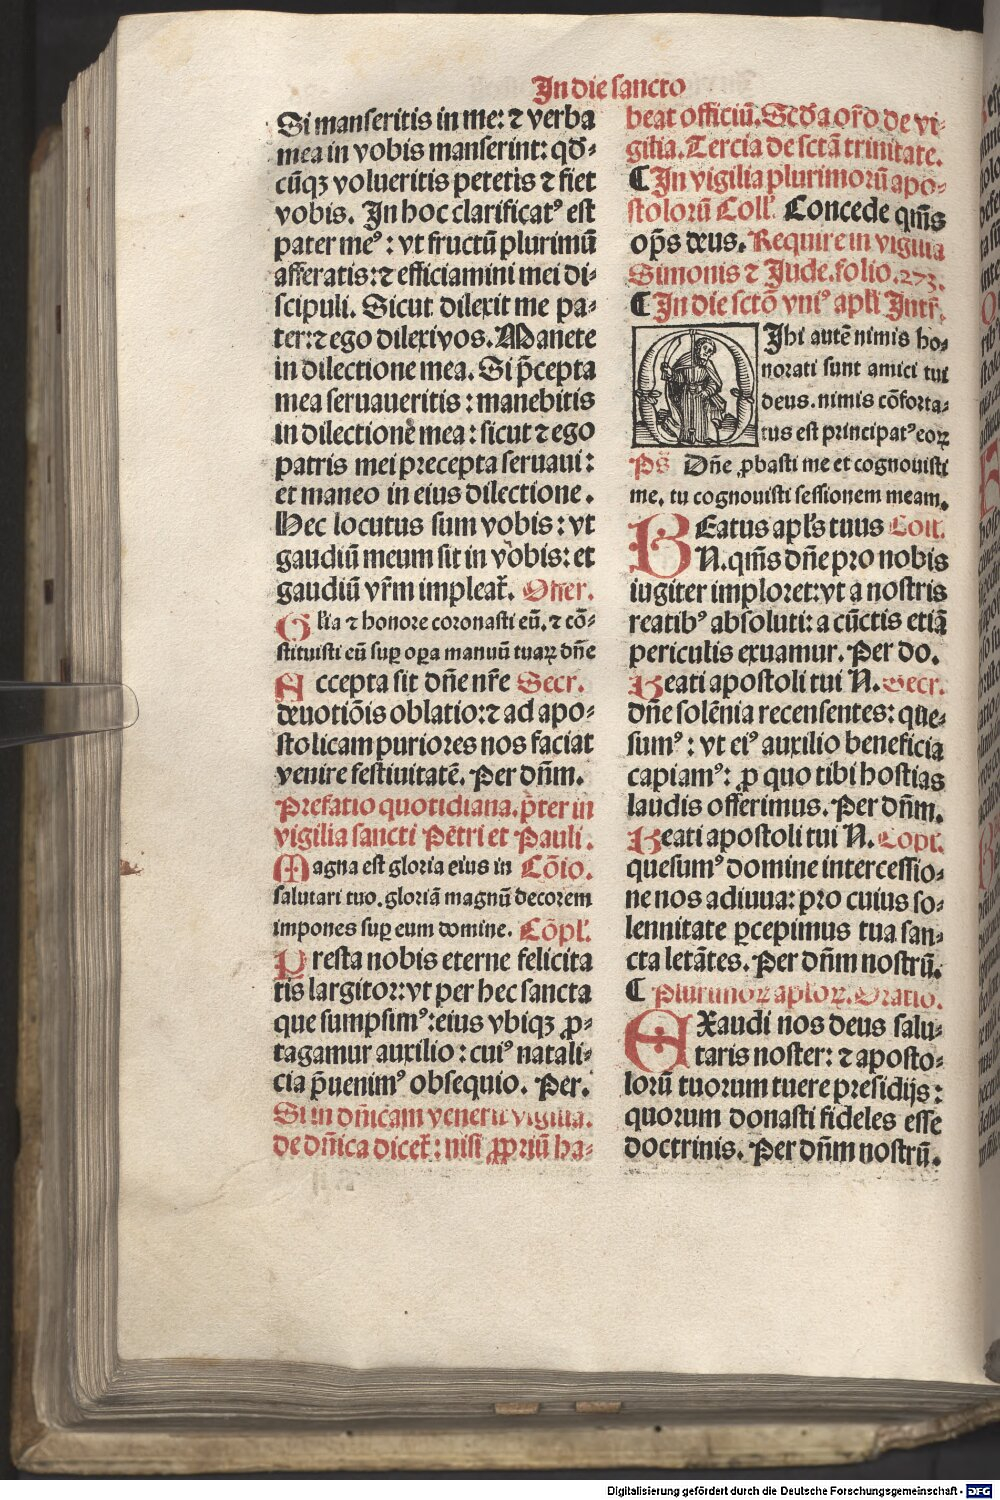 In die sancto
Si manseritis in me: ⁊ verba
mea in vobis manserint: qd̄-
cūqꝫ volueritis petetis ⁊ fiet
vobis. In hoc clarificatꝰ est
pater meꝰ: vt fructū plurimū
afferatis: ⁊ efficiamini mei di-
scipuli. Sicut dilexit me pa-
ter: ⁊ ego dilexi vos. Manete
in dilectione mea. Si p̄cepta
mea seruaueritis: manebitis
in dilectione mea: sicut ⁊ ego
patris mei precepta seruaui:
et maneo in eius dilectione.
Hec locutus sum vobis: vt
gaudiū meum sit in vobis: et
gaudiū vr̄m impleat̄. Offer.
Gl̄ia ⁊ honore coronasti eū. ⁊ cō-
stituisti eū suꝑ oꝑa manuū tuaꝝ dn̄e
Accepta sit dn̄e nr̄e Secr.
deuotiōis oblatio: ⁊ ad apo-
stolicam puriores nos faciat
venire festiuitatē. Per dn̄m.
Prefatio quotidiana. p̄ter in
vigilia sancti Petri et Pauli.
Magna est gloria eius in Cōio.
salutari tuo. gloriā magnū decorem
impones suꝑ eum domine. Cōpl̄.
Presta nobis eterne felicita
tis largitor: vt per hec sancta
que sumpsimꝰ: eius vbiqꝫ ꝓ-
tagamur auxilio: cuiꝰ natali-
cia p̄uenimꝰ obsequio. Per.
Si in dn̄icam venerit vigilia.
de dn̄ica dicet̄: nisi ꝓpriū ha-
beat officiū. Scd̄a or̄o de vi-
gilia. Tercia de sctā trinitate.
¶ In vigilia plurimorū apo-
stolorū Coll̄. Concede qm̄s
op̄s deus. Require in vigilia
Simonis ⁊ Jude. folio. 273.
¶ In die sctō vniꝰ apl̄i Intr̄.
MIhi autē nimis ho-
norati sunt amici tui
deus. nimis cōforta-
tus est principatꝰ eoꝝ
Ps̄ Dn̄e ꝓbasti me et cognouisti
me. tu cognouisti sessionem meam.
BEatus apl̄s tuus Coll.
N. qm̄s dn̄e pro nobis
iugiter imploret: vt a nostris
reatibꝰ absoluti: a cūctis etiā
periculis exuamur. Per do.
Beati apostoli tui N. Secr.
dn̄e solēnia recensentes: que-
sumꝰ: vt eiꝰ auxilio beneficia
capiamꝰ: ꝓ quo tibi hostias
laudis offerimus. Per dn̄m.
Beati apostoli tui N. Copl̄.
quesumꝰ domine intercessio-
ne nos adiuua: pro cuius so-
lennitate ꝑcepimus tua san-
cta letātes. Per dn̄m nostrū.
¶ Plurimoꝝ aploꝝ. Oratio.
EXaudi nos deus salu-
taris noster: ⁊ aposto-
lorū tuorum tuere presidijs:
quorum donasti fideles esse
doctrinis. Per dn̄m nostrū.
Digitalisierung gefördert durch die Deutsche Forschungsgemeinschaft - DFG